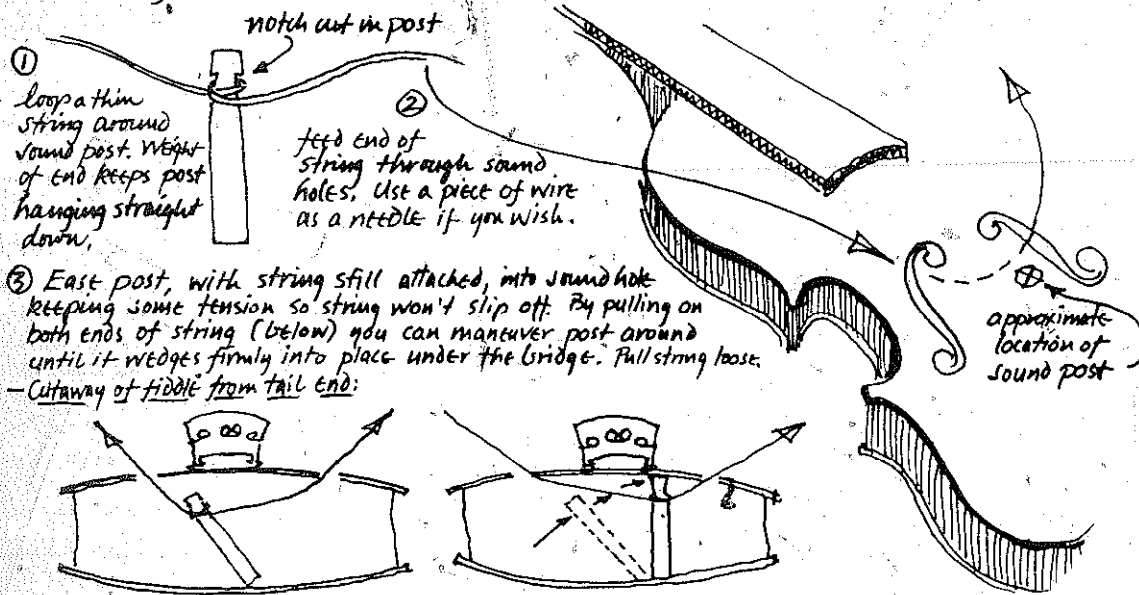 notch cut in post
①
loop a thin
string around
sound post. Weight
of end keeps post
hanging straight
down.
②
feed end of
string through sound
holes. Use a piece of wire
as a needle if you wish.
③ Ease post, with string still attached, into sound hole
keeping some tension so string won't slip off. By pulling on
both ends of string (below) you can maneuver post around
until it wedges firmly into place under the bridge. Pull string loose.
— Cutaway of fiddle from tail end:
approximate
location of
sound post